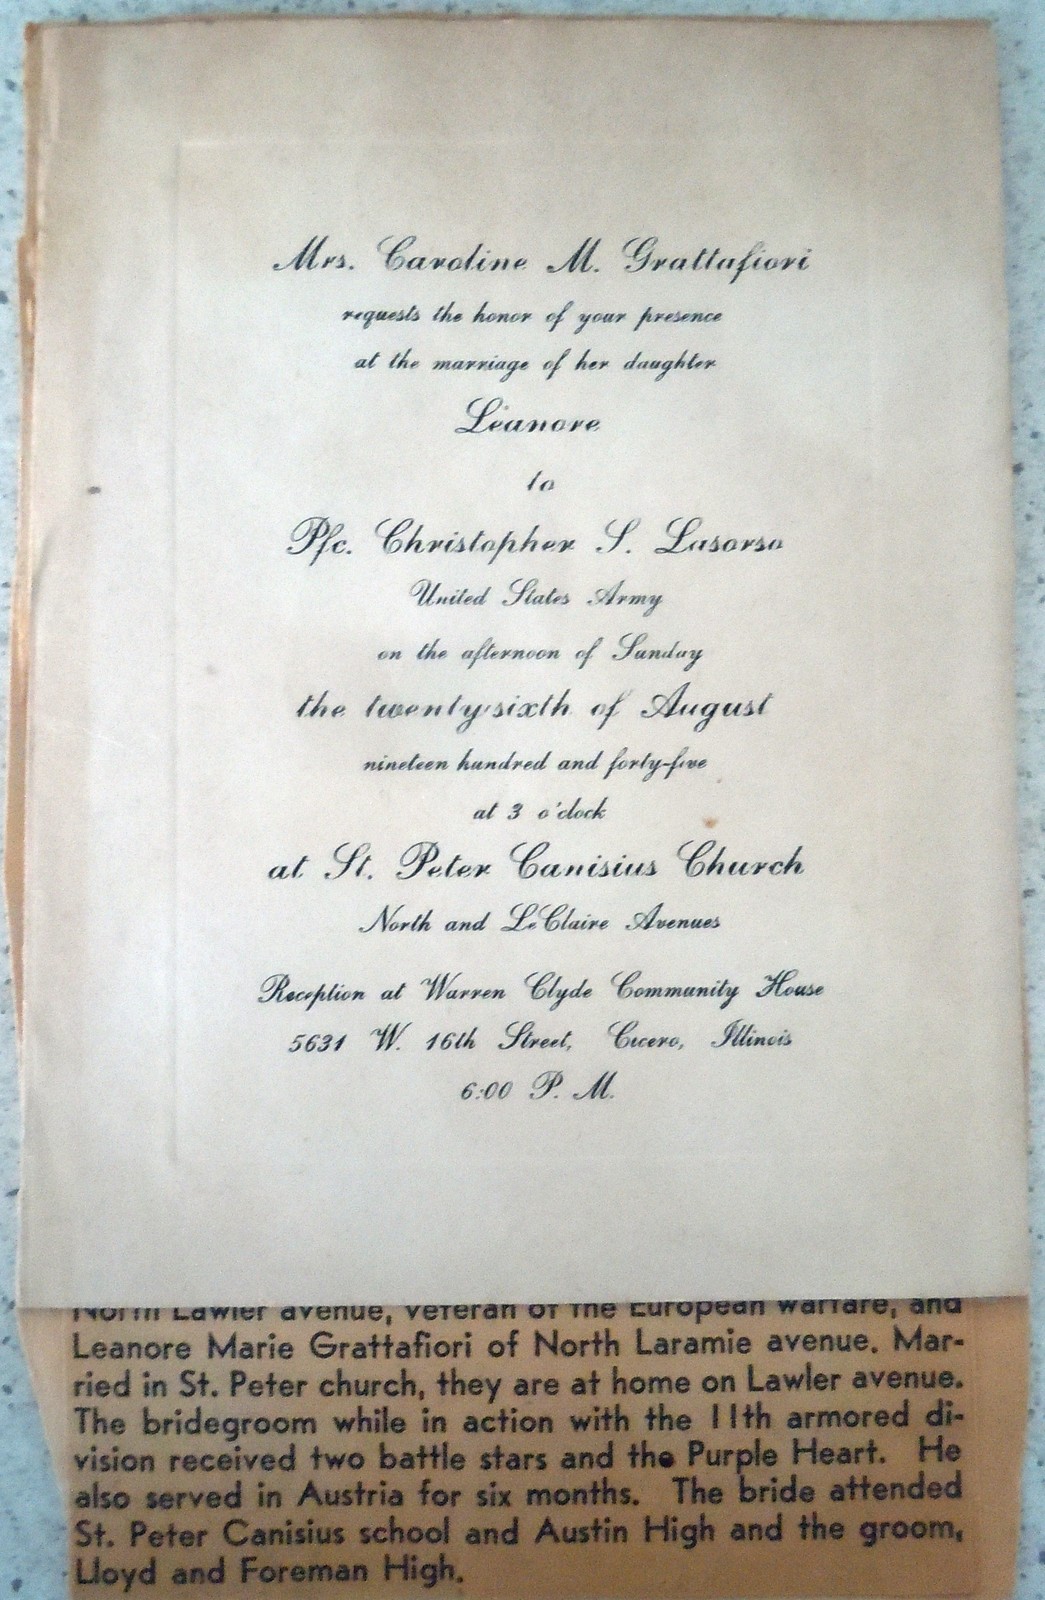 Mrs. Caroline M. Grattafiori
requests the honor of your presence
at the marriage of her daughter
Leanore
to
Pfc. Christopher S. Lasorso
United States Army
on the afternoon of Sunday
the twenty-sixth of August
nineteen hundred and forty-five
at 3 o'clock
at St. Peter Canisius Church
North and LeClaire Avenues
Reception at Warren Clyde Community House
5631 W. 16th Street, Cicero, Illinois
6:00 P. M.
North Lawler avenue, veteran of the European warfare, and
Leanore Marie Grattafiori of North Laramie avenue. Mar-
ried in St. Peter church, they are at home on Lawler avenue.
The bridegroom while in action with the 11th armored di-
vision received two battle stars and the Purple Heart. He
also served in Austria for six months. The bride attended
St. Peter Canisius school and Austin High and the groom,
Lloyd and Foreman High.